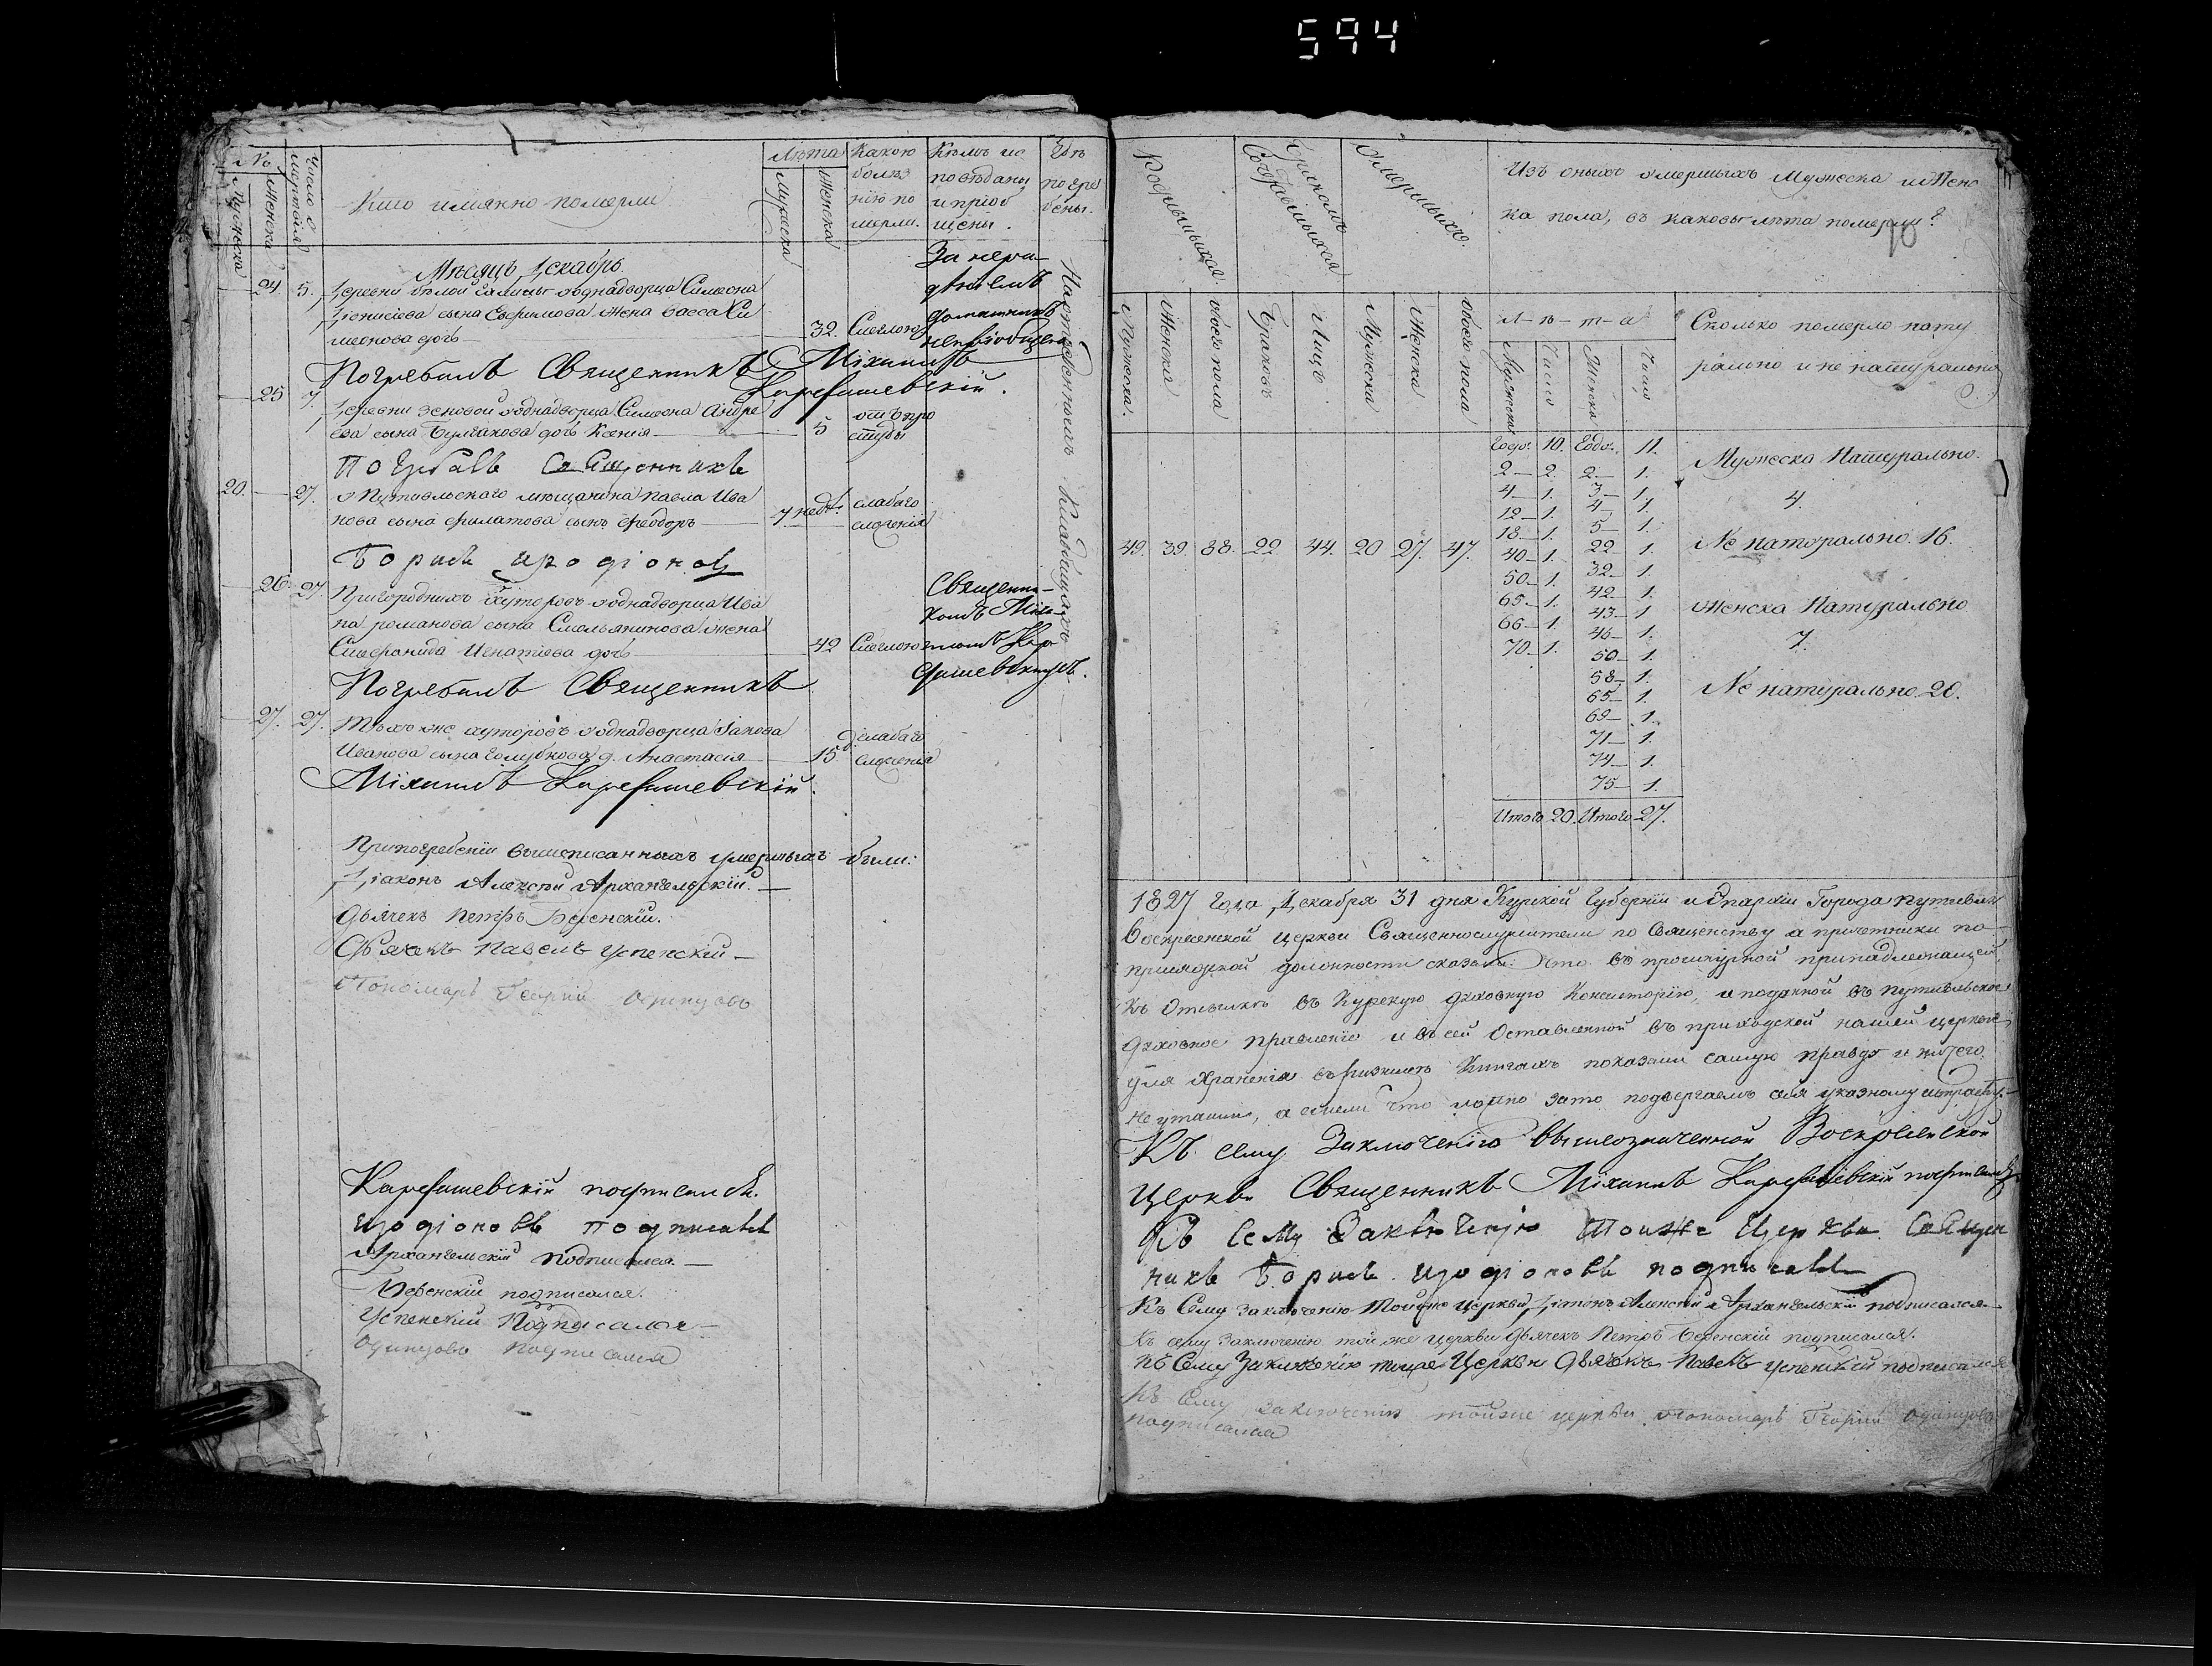 594
№
Мужеска
Женска
Число смертей
Кто имянно померли
Лѣта
Мужеска
Женска
Какою болѣзнію померли.
Кѣмъ исповѣданы и пріобщены.
Гдѣ погребены.
Мѣсяцъ Декабрь
24. 5. Деревни бѣлой Галицы однадворца Симеона
Діонисіева сына Евфимова жена Васса Си
меонова дочь 32. Смеглою
За нера
дѣніемъ
домашнихъ
непріобщена
На отведенныхъ кладбищахъ
Погребалъ Священникъ Михаилъ
Карефашевскій.
25 7. Деревни Зеновой однадворца Симеона Андре
ева сына Булгакова дочь Ксенія 5 отъ про
студы
Погребалъ Священникъ
20. 27. Путивльскаго мѣщанина Павла Ива
нова сына Филатова сынъ Феодоръ 7 недѣ. слабаго
сложенія
Борисъ Иродіоновъ
26. 27. Пригородныхъ хуторовъ однадворца Ива
на Романова сына Смольянинова жена
Стефанида Игнатіева дочь 42 Смеглою
Священни-
комъ Миха-
иломъ Кар
фашевскимъ.
Погребалъ Священникъ
27. 27. Тѣхъ же хуторовъ однадворца Іакова
Иванова сына Голубкова д. Анастасія 15 д. слабаго
сложенія
Михаилъ Карефашевскій.
При погребеніи вышеписанныхъ умершихъ были:
Діаконъ Алексѣй Архангельскій.
Дьячекъ Петръ
Дьячекъ Павелъ Успенскій
Пономарь Георгій Одинцовъ
Карефашевскій подписался.
Иродіоновъ подписалъ
Архангельскій подписался.
подписался.
Успенскій Подписался
Одинцовъ подписался
Родившихся
Бракомъ Сочетавшихся
Умершихъ.
Изъ оныхъ умершыхъ Мужеска и Женс
ка пола, въ каковы лѣта померли?
Мужеска.
Женска
Обоего пола
Браковъ
Лицъ.
Мужска
Женска
Обоего пола
Л-ѣ-т-а
Мужеска
Число
Женска
Число
Сколько померло нату
рально и не натурально
49. 39. 88. 22. 44. 20 27. 47.
Годо. 10. Годо. 11.
2— 2. 2— 1.
4— 1. 3— 1.
12— 1. 4— 1.
18— 1. 5— 1.
40— 1. 22— 1.
50— 1. 32— 1.
65— 1. 42— 1.
66— 1. 43— 1
70— 1. 46— 1.
50— 1.
58— 1.
65— 1.
69— 1.
71— 1.
74— 1.
75— 1.
Итого 20. Итого 27.
Мужеска Натурально.
4.
Не наторально. 16.
Женска Натурально
7.
Не натурально. 20.
1827 Года Декабря 31 дня Курской Губерніи и Епархіи Города Путивля
Воскресенской церкви Священнослужители по Священству а причетники по
присяжной должности сказали: Что въ прошнурной принадлежащей
къ Отсылкѣ въ Курскую духовную Консисторію, и поданной въ Путивльское
духовное правленіе и въ сей Оставленной въ приходской нашей церкви
для храненія въ ризницѣ Книгахъ показали самую правду и ничего
не утаили, а ежели что ложно зато подвергаемъ себя указному штрафу.
Къ сему Заключенію вышеозначенной Воскресенской
Церкви Священникъ Михаилъ Карефашевскій подписался
Къ Сему Заключенію Тоиже Церкви Священ
никъ Борисъ Иродіоновъ подписалъ
Къ Сему заключенію Тойже Церкви Діаконъ Алексѣй Архангельскій подписался.
Къ сему заключенію той же церкви Дьячекъ Петръ подписался.
Къ Сему Заключенію тоиже Церкви Дьячекъ Павелъ Успенскій подписался
Къ Сему заключенію тойже церкви Пономарь Георгій Одинцовъ
подписался